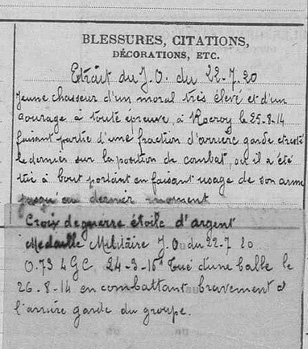 BLESSURES, CITATIONS,
DÉCORATIONS, ETC.
Extrait du J.O. du 22-7-20
Jeune chasseur d'un moral très élevé et d'un
courage à toute épreuve, à Rocroy le 25-8-14
faisant partie d'une fraction d'arrière garde est resté
le dernier sur la position de combat, où il a été
tué à bout portant en faisant usage de son arme
jusqu'au dernier moment
Croix de guerre étoile d'argent
Medaille Militaire J.O du 22-7 20
24-3-16 Tué d'une balle le
26-8-14 en combattant bravement à
l'arrière garde du groupe.